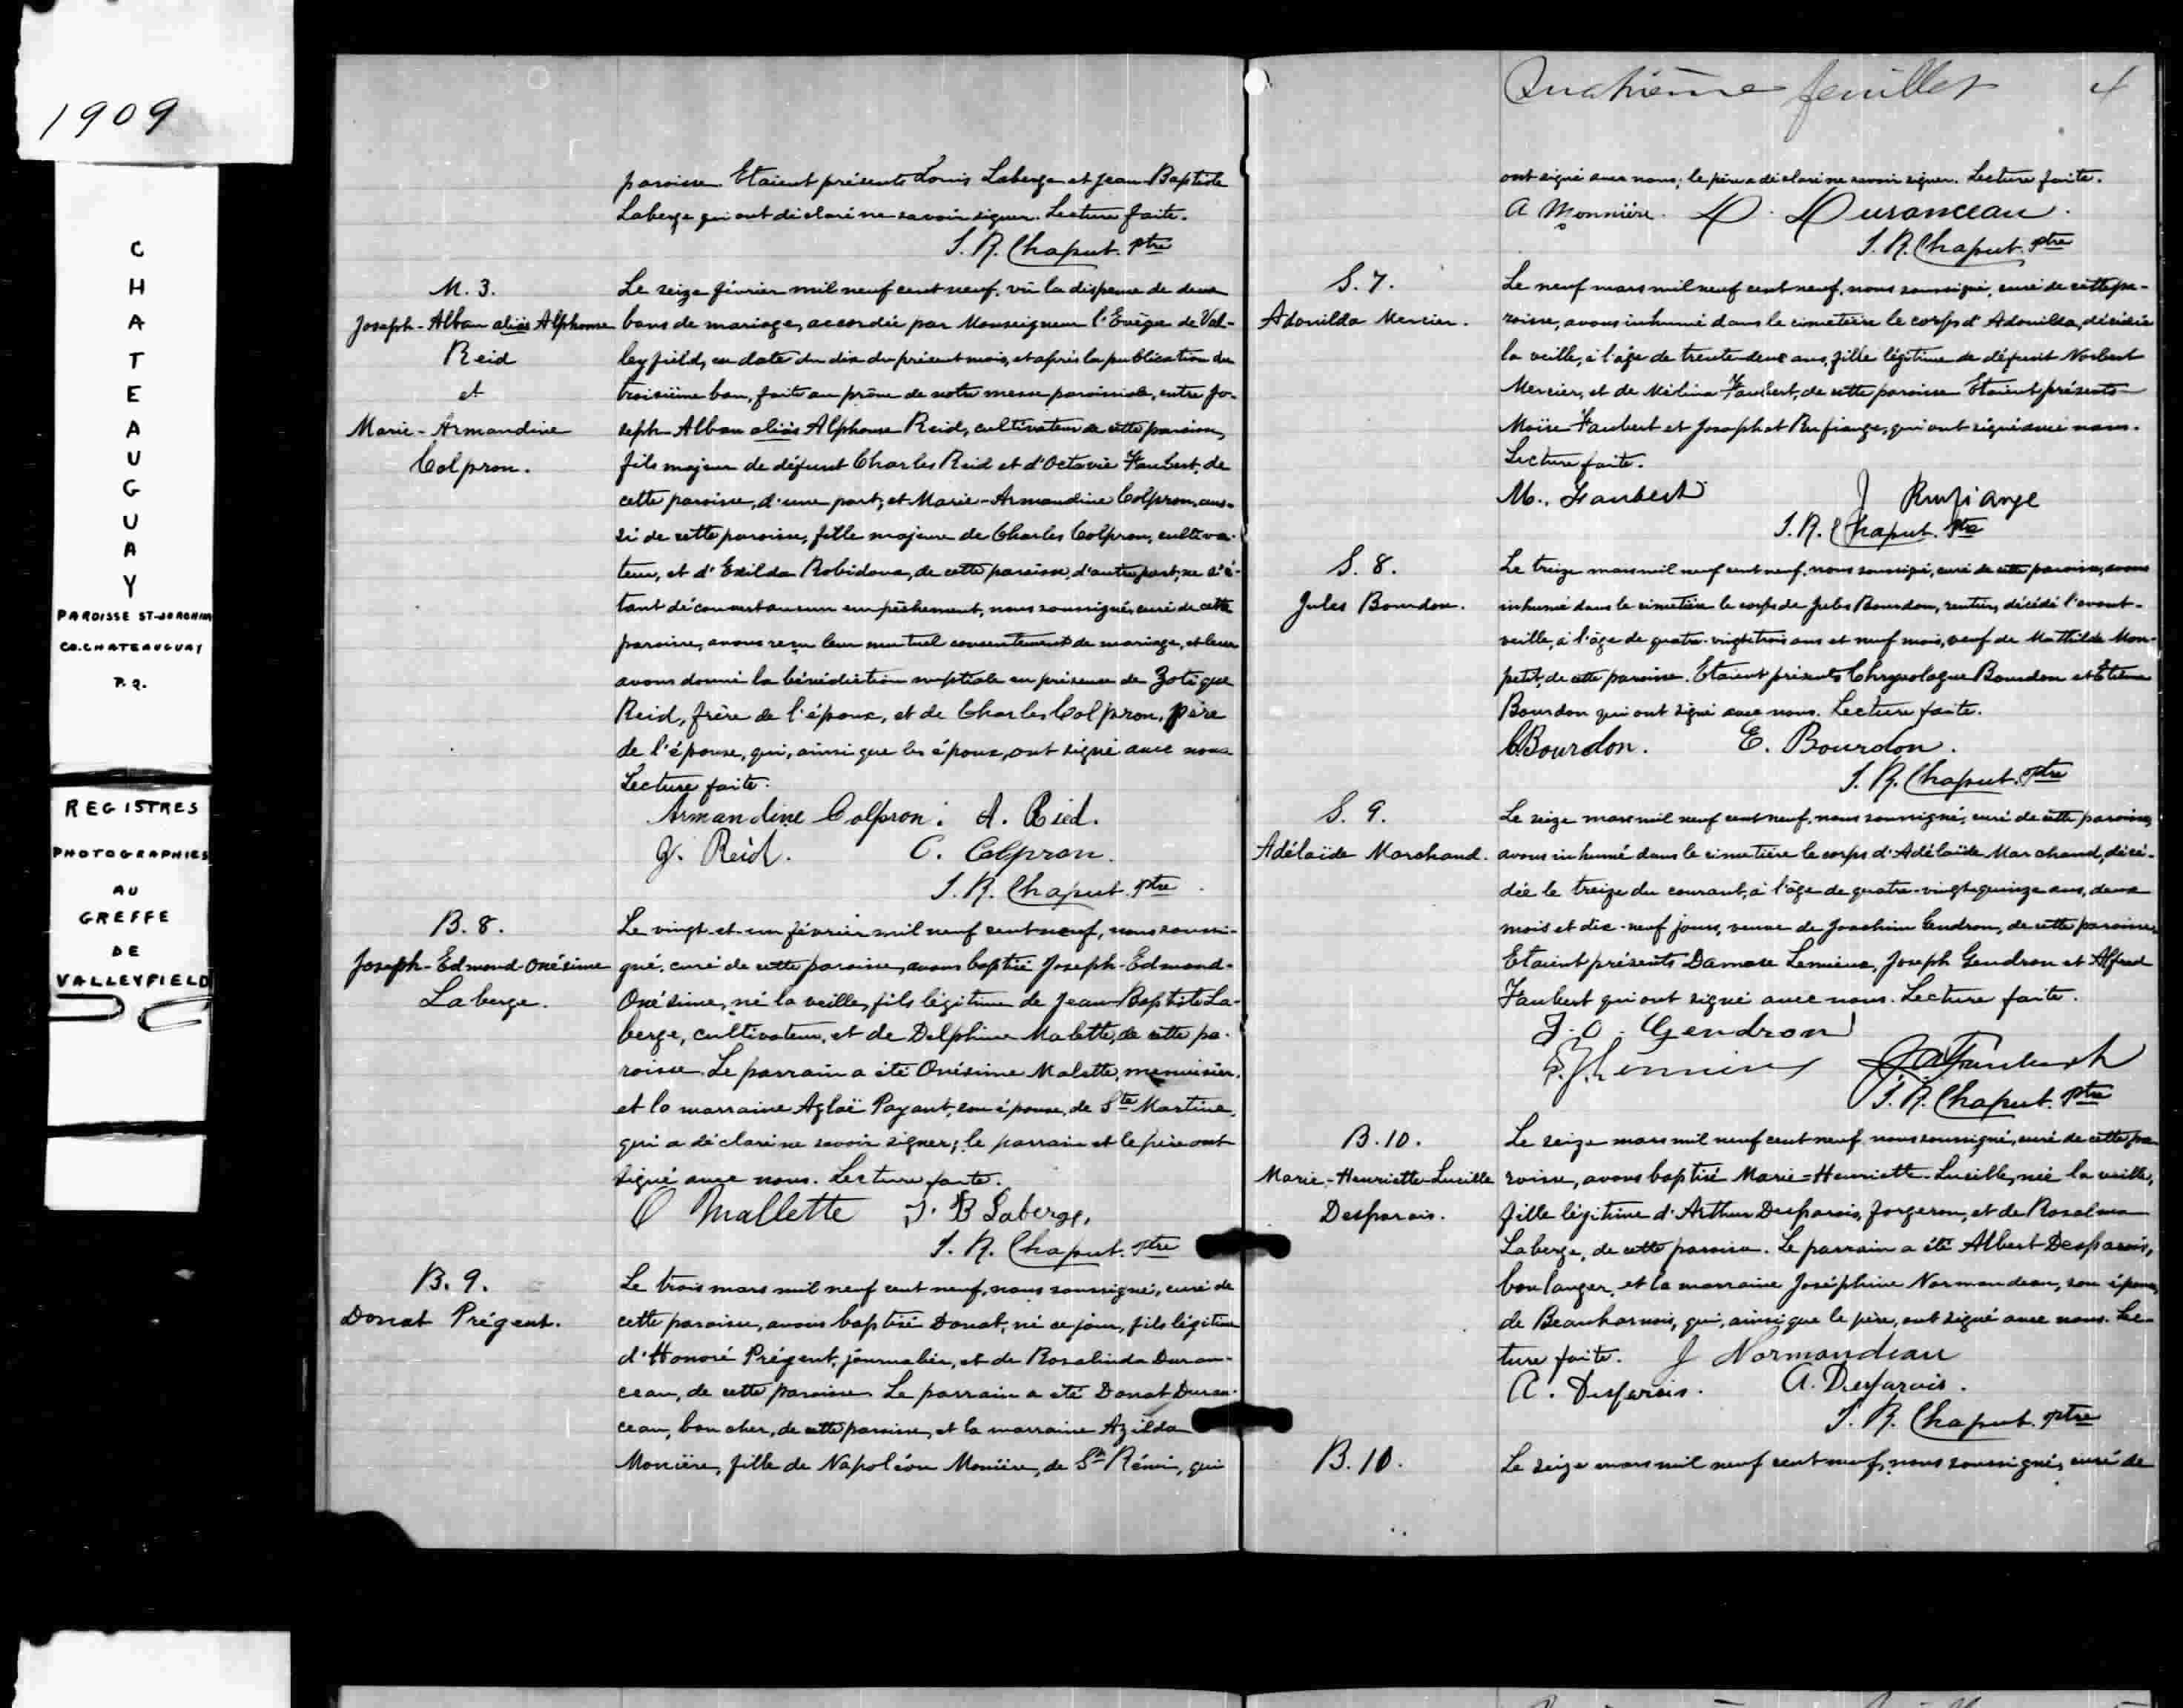 1909
C
H
A
T
E
A
U
G
U
A
Y
PAROISSE ST-JOACHIM
CO. CHATEAUGUAY
P.Q.
REGISTRES
PHOTOGRAPHIES
AU
GREFFE
DE
VALLEYFIELD
paroisse. Etaient présents Louis Laberge et Jean-Baptiste
Laberge qui ont déclaré ne savoir signer. Lecture faite.
J. R. Chaput. ptre
M. 3.
Joseph-Alban aliàs Alphonse
Reid
et
Marie-Armandine
Colpron.
Le seize février mil neuf cent neuf, vû la dispense de deux
bans de mariage, accordée par Monseigneur l'Evêque de Val-
leyfield, en date du dix du présent mois, et après la publication du
troisième ban, faite au prône de notre messe paroissiale, entre Jo-
seph-Alban aliàs Alphonse Reid, cultivateur de cette paroisse,
fils majeur de défunt Charles Reid et d'Octavie Faubert, de
cette paroisse, d'une part, et Marie-Armandine Colpron, aus-
si de cette paroisse, fille majeure de Charles Colpron, cultiva-
teur, et d'Exilda Robidoux, de cette paroisse, d'autre part, ne s'é-
tant découvert aucun empêchement, nous soussigné, curé de cette
paroisse, avons reçu leur mutuel consentement de mariage, et leur
avons donné la bénédiction nuptiale en présence de Zotique
Reid, frère de l'époux, et de Charles Colpron, père
de l'épouse, qui, ainsi que les époux, ont signé avec nous
Lecture faite.
Armandine Colpron. A. Reid.
Z. Reid. C. Colpron.
J. R. Chaput. ptre
B. 8.
Joseph-Edmond-Onésime
Laberge.
Le vingt-et-un février mil neuf cent neuf, nous soussi-
gné, curé de cette paroisse, avons baptisé Joseph-Edmond-
Onésime, né la veille, fils légitime de Jean-Baptiste La-
berge, cultivateur, et de Delphine Malette, de cette pa-
roisse. Le parrain a été Onésime Malette, menuisier,
et la marraine Aglaë Payant, son épouse, de Ste Martine,
qui a déclaré ne savoir signer; le parrain et le père ont
signé avec nous. Lecture faite.
O Mallette J. B Laberge.
J. R. Chaput. ptre
B. 9.
Donat Prégent.
Le trois mars mil neuf cent neuf, nous soussigné, curé de
cette paroisse, avons baptisé Donat, né ce jour, fils légitime
d'Honoré Prégent, journalier, et de Rosalinda Duran-
ceau, de cette paroisse. Le parrain a été Donat Duran-
ceau, boucher, de cette paroisse, et la marraine Azilda
Monière, fille de Napoléon Monière, de St Rémi, qui
Quatrième feuillet 4
ont signé avec nous; le père a déclaré ne savoir signer. Lecture faite.
A Monnière. D. Duranceau.
J. R. Chaput. ptre
S. 7.
Adonilda Mercier.
Le neuf mars mil neuf cent neuf, nous soussigné, curé de cette pa-
roisse, avons inhumé dans le cimetière le corps d'Adonilda, décédée
la veille, à l'âge de trente-deux ans, fille légitime de défunt Norbert
Mercier, et de Mélina Faubert, de cette paroisse. Etaient présents
Moïse Faubert et Josaphat Rufiange, qui ont signé avec nous.
Lecture faite.
M. Faubert J Rufiange
J. R. Chaput. ptre
S. 8.
Jules Bourdon.
Le treize mars mil neuf cent neuf, nous soussigné, curé de cette paroisse, avons
inhumé dans le cimetière le corps de Jules Bourdon, rentier, décédé l'avant-
veille, à l'âge de quatre-vingt-trois ans et neuf mois, veuf de Mathilde Mon-
petit, de cette paroisse. Etaient présents Chrysologue Bourdon et Etienne
Bourdon qui ont signé avec nous. Lecture faite.
C Bourdon. E. Bourdon.
J. R. Chaput. ptre
S. 9.
Adélaïde Marchand.
Le seize mars mil neuf cent neuf, nous soussigné, curé de cette paroisse,
avons inhumé dans le cimetière le corps d'Adélaïde Marchand, décé-
dée le treize du courant, à l'âge de quatre-vingt-quinze ans, deux
mois et dix-neuf jours, veuve de Joachim Gendron, de cette paroisse,
Etaient présents Damase Lemieux, Joseph Gendron et Alfred
Faubert qui ont signé avec nous. Lecture faite.
J. O. Gendron
J. R. Chaput. ptre
B. 10.
Marie-Henriette-Lucille
Desparois.
Le seize mars mil neuf cent neuf, nous soussigné, curé de cette pa-
roisse, avons baptisé Marie-Henriette-Lucille, née la veille,
fille légitime d'Arthur Desparois, forgeron, et de Rosalma
Laberge, de cette paroisse. Le parrain a été Albert Desparois,
boulanger, et la marraine Joséphine Normandeau, son épouse,
de Beauharnois, qui, ainsi que le père, ont signé avec nous. Lec-
ture faite. J Normandeau
A. Desparois. A. Desparois.
J. R. Chaput. ptre
B. 10.
Le seize mars mil neuf cent neuf, nous soussigné, curé de